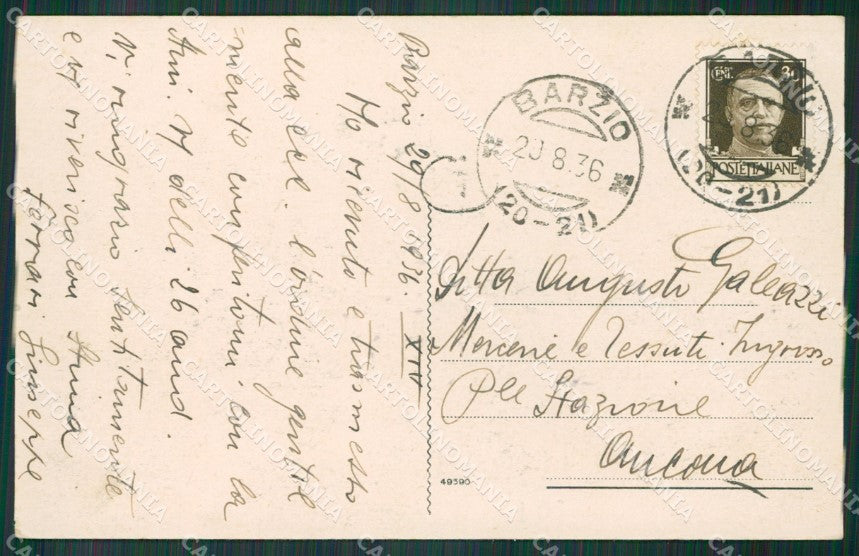 Barzio 29/8 1936. XIV
Ho ricevuto e trasmesso
alla ecc. l'ordine gentil
mente compritomi con la
V delli 26 and.
Vi ringrazio sentitamente
e Vi riverisco con stima
Ferrari Giuseppe
BARZIO
29.8.36
(20-21)
BARZIO
(20-21)
CENT. 30
POSTE ITALIANE
Ditta Augusto Galeazzi
Mercerie e Tessuti Ingrosso
Ple Stazione
Ancona
49390
CARTOLINOMANIA